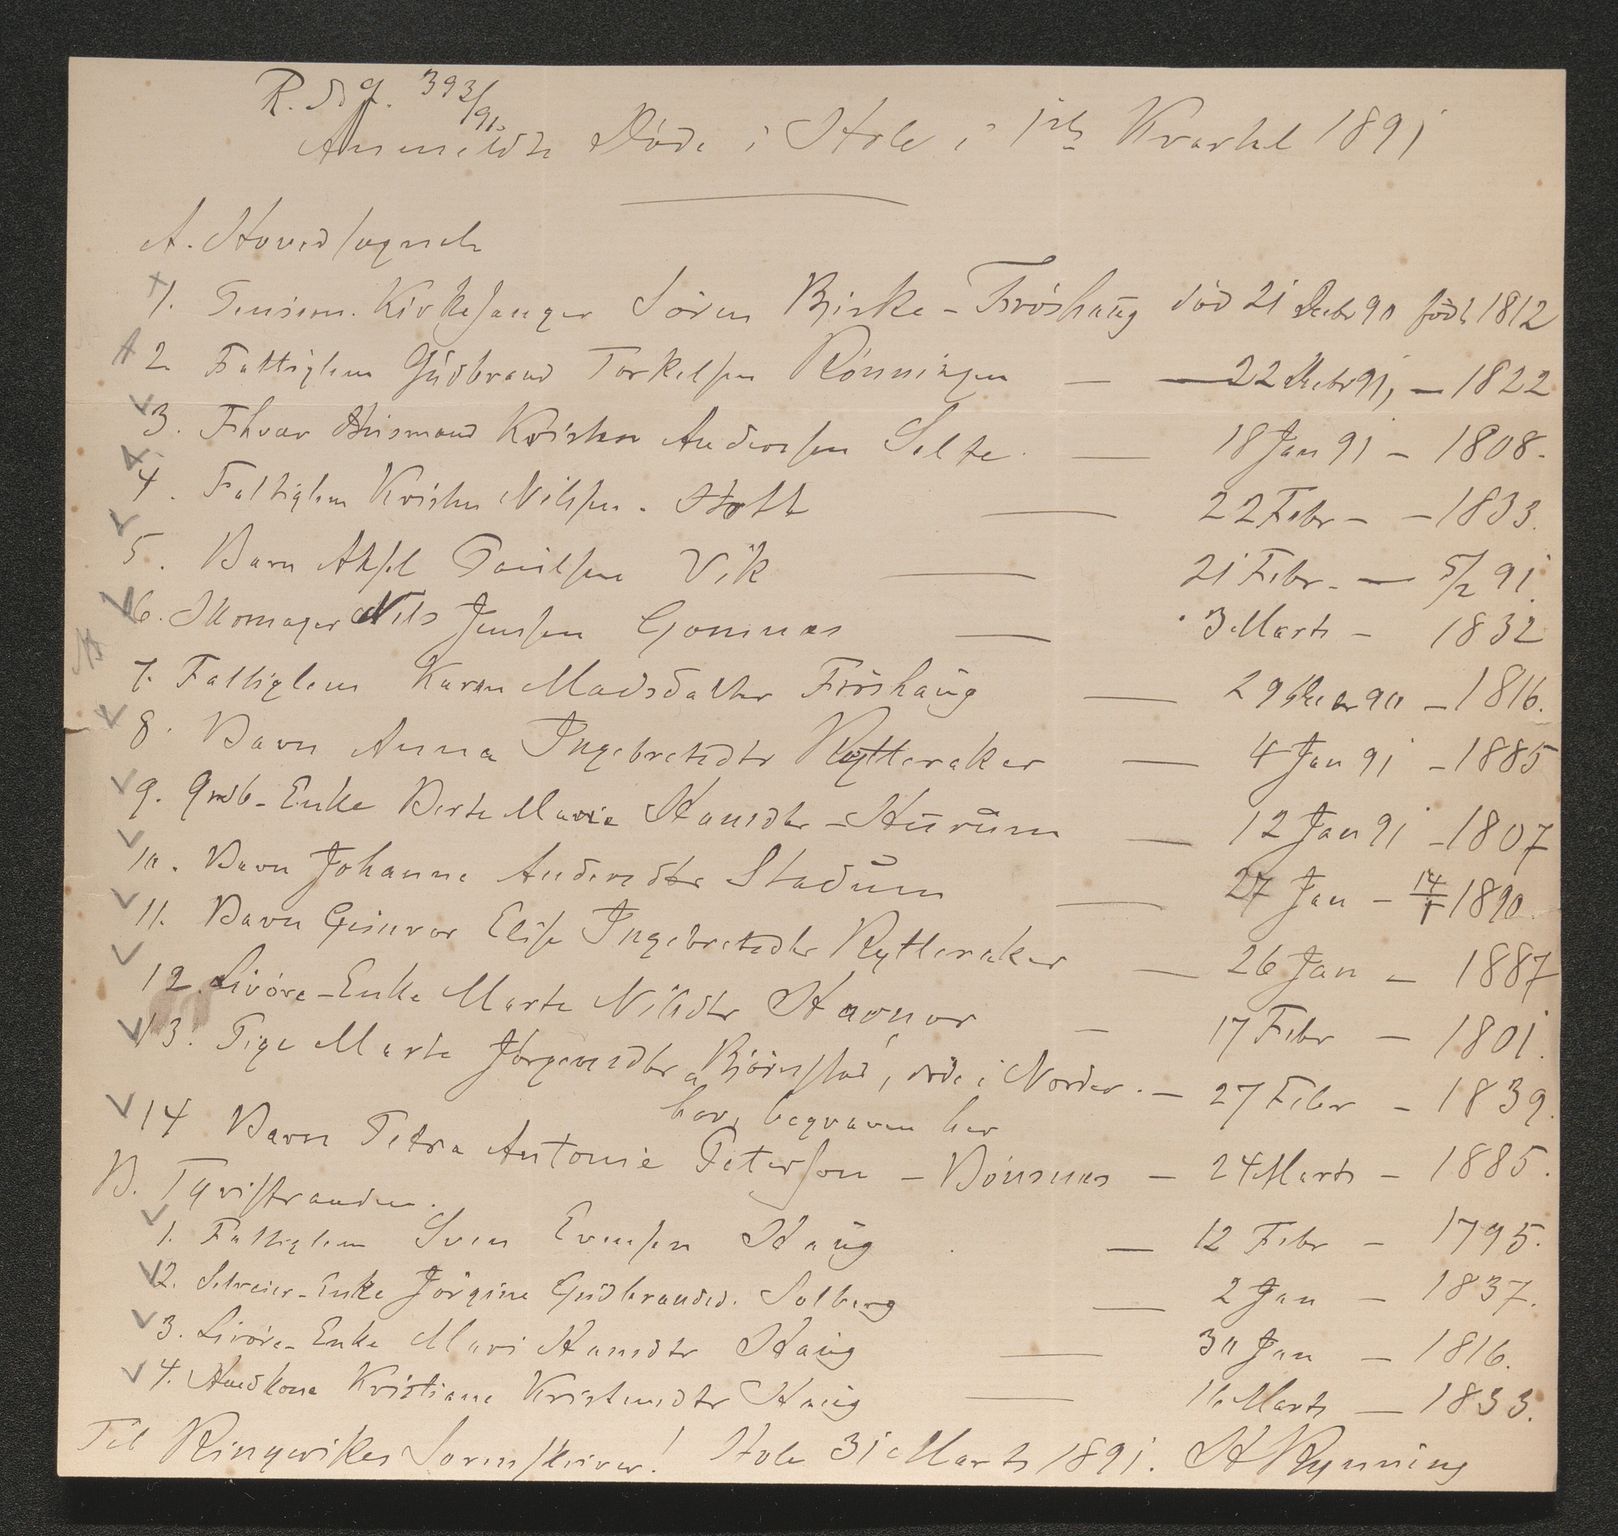 R. S. J. 393/91.
Anmeldte Døde i Hole i 1ste Kvartal 1891
A. Hovedsognet
1. Pension. Kirkesanger Søren Bjerke - Frøshaug død 21 Decbr 90 født 1812
2. Fattiglem Gudbrand Torkelsen Rønningen — — 22 Decbr 91, — 1822
3. Fhvær Husmand Kristen Andersen Selte — 18 Jan 91 — 1808.
4. Fattiglem Kristen Nilsen — 22 Febr — — 1833.
5. Barn Aksel Paulsen Vik — 21 Febr. — 5/2 91.
6. Skomager Nils Jensen Gomnæs — 3 Marts — 1832
7. Fattiglem Karen Madsdatter Frøshaug — 29 Decbr 90 — 1816.
8. Barn Anna Ingebretsdtr Rytteraker — 4 Jan 91 — 1885
9. Grdb. Enke Berte Marie Hansdtr - Hurum — 12 Jan 91 — 1807
10. Barn Johanne Andersdtr Stadum — 27 Jan — 14/1 1890.
11. Barn Gunvor Elise Ingebretsdtr Rytteraker — 26 Jan — 1887
12. Livøre-Enke Marte Nilsdtr Havnor — 17 Febr — 1801.
13. Pige Marte Jørgensdtr Bjørnstad, døde i Norder- — 27 Febr — 1839.
hov, begraven her
14 Barn Petra Antonie Peterson - Bønsnes — 24 Marts — 1885.
B. Tyristranden.
1. Fattiglem Sven Evensen Haug — 12 Febr — 1795.
2. Selveier-Enke Jørgine Gudbrandsd. Solberg — 2 Jan — 1837.
3. Livøre-Enke Mari Hansdtr Haug — 30 Jan — 1816.
4. Kristiane Kristensdtr Haug — 16 Marts — 1833.
Til Ringerikes Sorenskriver! Hole 31 Marts 1891. H Rynning